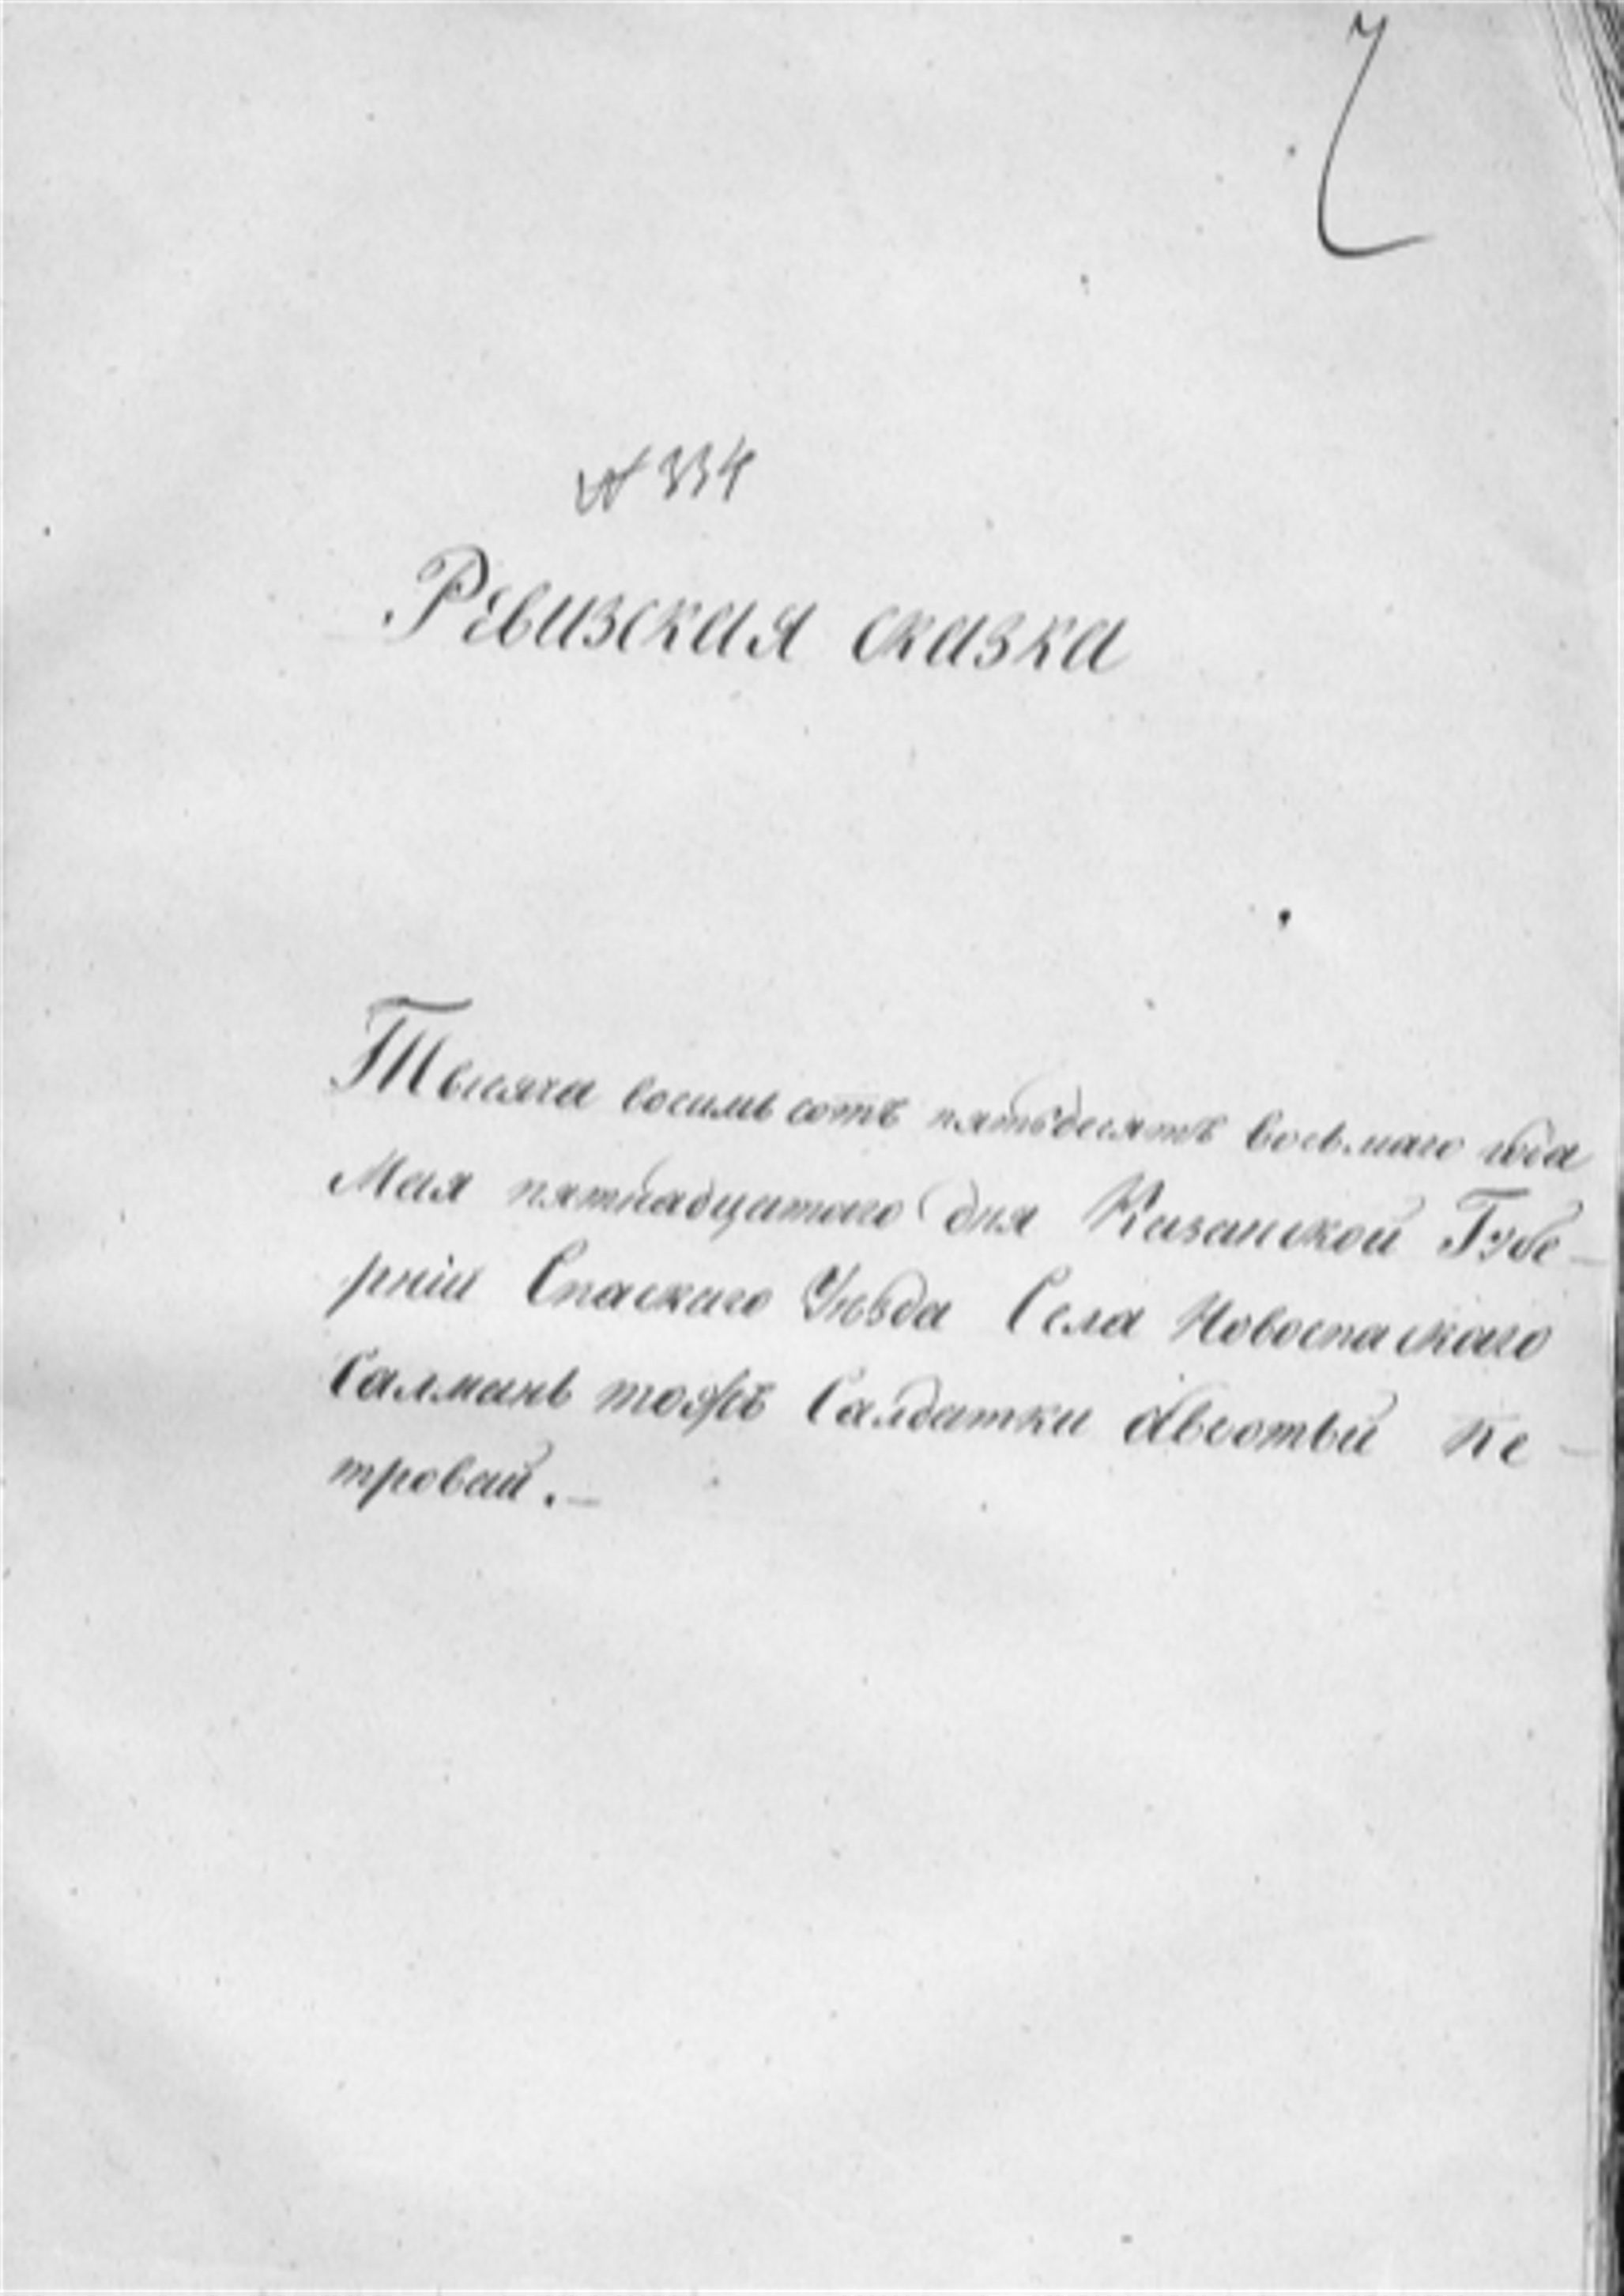 № 334
Ревизская сказка
Тысяча восимь сотъ пятьдесятъ восьмаго года
Мая пятнадцатого дня Казанской Губе-
рніи Спаскаго Уѣзда Села Новоспаскаго
Салманъ тожъ Салдатки Авдотьи Пе-
тровай.-